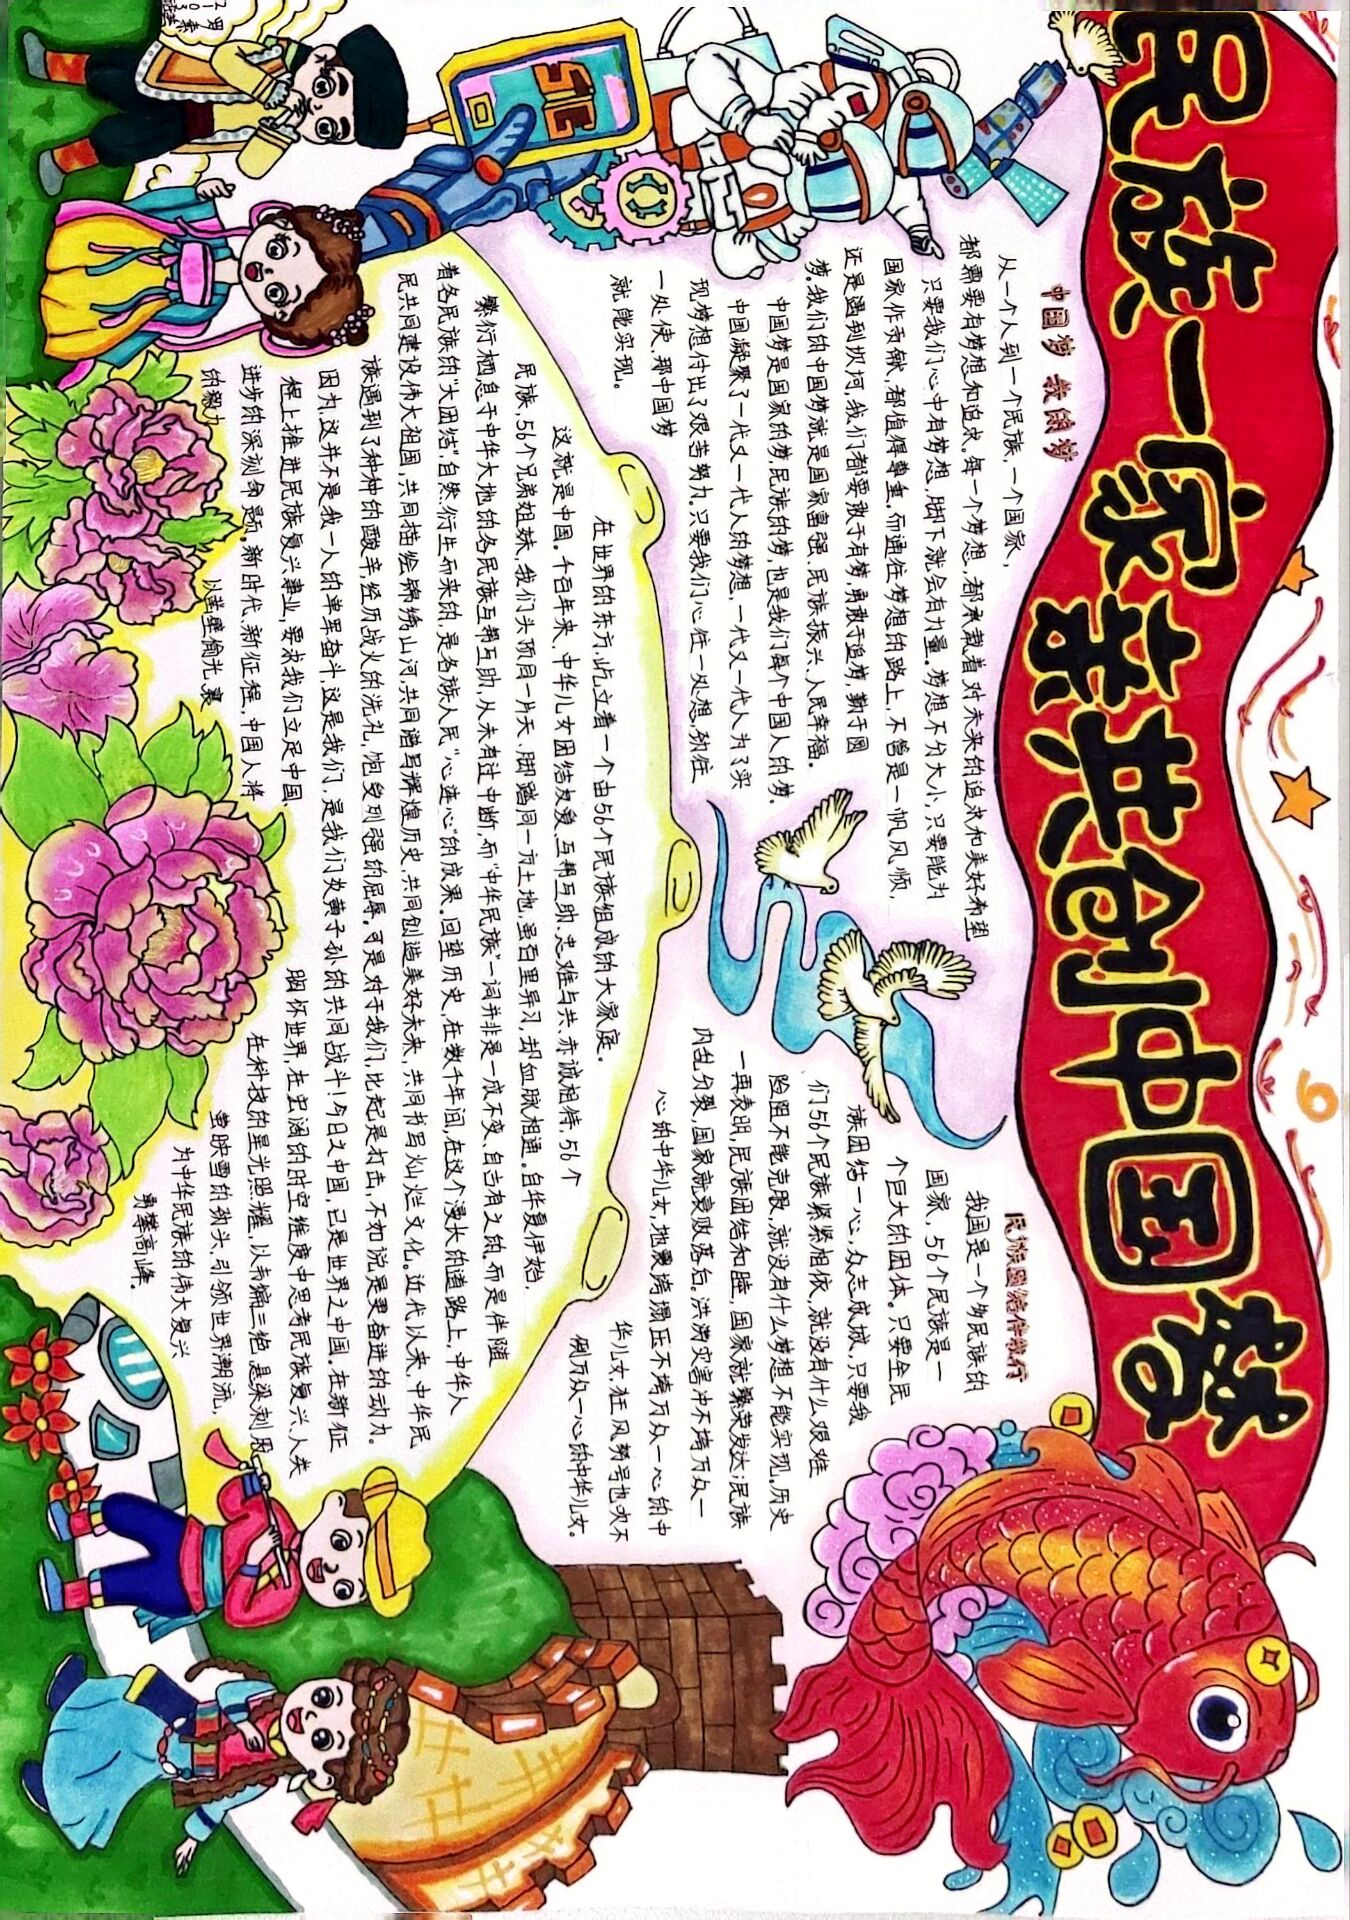 民族一家亲共创中国梦
中国梦 我的梦
从一个人到一个民族，一个国家，
都需要有梦想和追求。每一个梦想，都承载着对未来的追求和美好希望
只要我们心中有梦想，脚下就会有力量。梦想不分大小，只要能为
国家作贡献，都值得尊重。而通往梦想的路上，不管是一帆风顺，
还是遇到坎坷，我们都要敢于有梦，勇敢于追梦，勤于圆
梦。我们的中国梦就是国家富强、民族振兴、人民幸福。
中国梦是国家的梦，民族的梦，也是我们每个中国人的梦。
中国凝聚了一代又一代人的梦想，一代又一代人为了实
现梦想付出了艰苦努力，只要我们心往一处想，劲往
一处使，那中国梦
就能实现。
民族团结伴我行
我国是一个多民族的
国家，56个民族是一
个巨大的团体。只要全民
族团结一心，众志成城，只要我
们56个民族紧紧相依，就没有什么艰难
险阻不能克服，就没有什么梦想不能实现。历史
一再表明，民族团结和睦，国家就繁荣发达；民族
内乱分裂，国家就衰败落后。洪涝灾害冲不垮万众一
心的中华儿女，地震垮塌压不垮万众一心的中
华儿女，狂风努号也吹不
倒万众一心的中华儿女。
在世界的东方，屹立着一个由56个民族组成的大家庭。
这就是中国。千百年来，中华儿女团结友爱、互帮互助、患难与共、赤诚相待，56个
民族，56个兄弟姐妹，我们头顶同一片天，脚踏同一方土地，虽百里异习，却血脉相通。自华夏伊始，
繁衍栖息于中华大地的各民族互帮互助，从未有过中断，而“中华民族”一词并非是一成不变、自古有之的，而是伴随
着各民族的“大团结”自然衍生而来的，是各族人民“心连心”的成果。回望历史，在数千年间，在这个漫长的道路上，中华人
民共同建设伟大祖国，共同描绘锦绣山河，共同谱写辉煌历史，共同创造美好未来，共同书写灿烂文化。近代以来，中华民
族遇到了种种的酸辛，经历战火的洗礼，饱受列强的屈辱。可是对于我们，比起是打击，不如说是要奋进的动力。
因为，这并不是我一人的单军奋斗，这是我们，是我们炎黄子孙的共同战斗！今日之中国，已是世界之中国。在新征
程上推进民族复兴事业，要求我们立足中国、胸怀世界，在宏阔的时空维度中思考民族复兴、人类
进步的深刻命题。新时代、新征程，中国人将在科技的星光照耀，以韦编三绝、悬梁刺股
的毅力，以凿壁偷光、囊萤映雪的劲头，引领世界潮流，
为中华民族的伟大复兴
勇攀高峰。